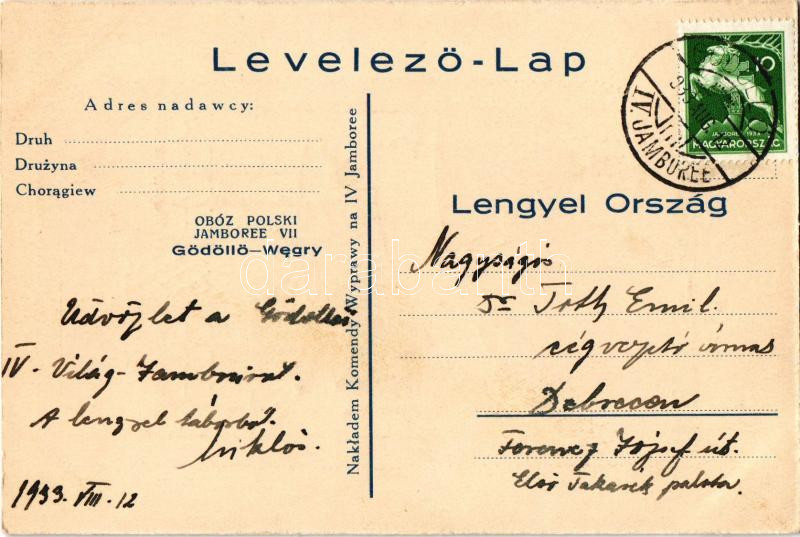 Levelezö-Lap
Adres nadawcy:
Druh
Drużyna
Chorągiew
OBÓZ POLSKI
JAMBOREE VII
Gödöllö—Węgry
Nakładem Komendy Wyprawy na IV Jamboree
Üdvözlet a Gödöllői
IV - Világ-Jamboreeról.
A lengyel táborból.
Miklós.
1933. VIII. 12
10
JAMBOREE 1933
MAGYARORSZÁG
IV JAMBOREE
Lengyel Ország
Nagyságos
Dr Tóth Emil
Debrecen
Ferencz József út.
Első Takarék palota.
darabanth